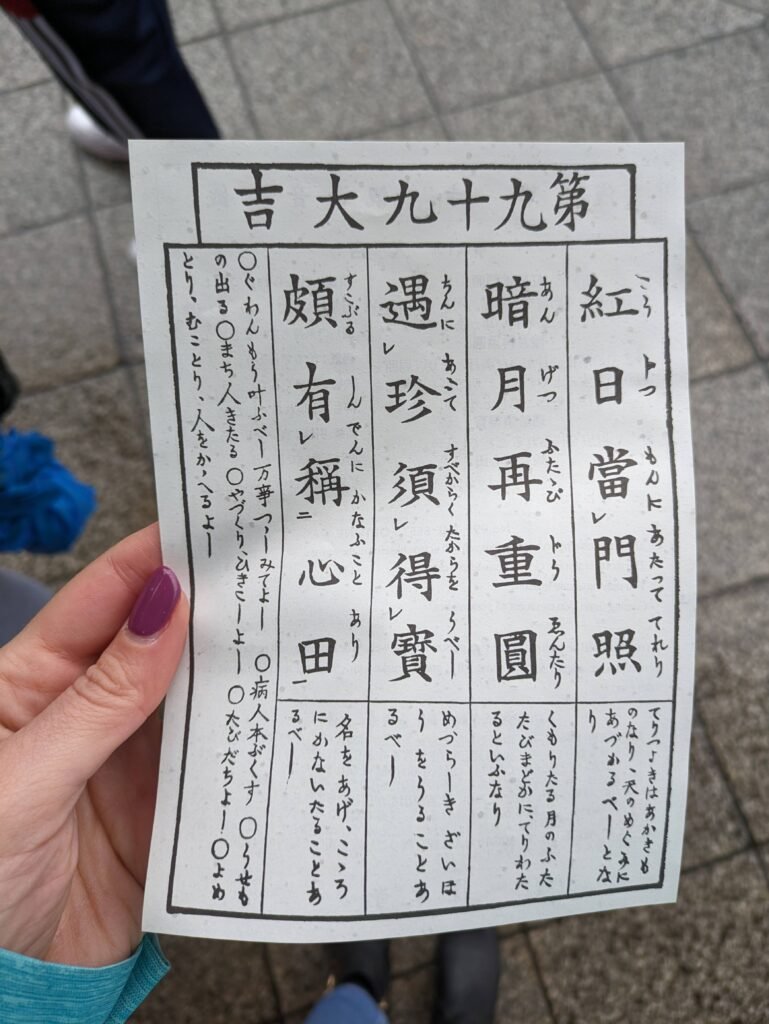 第九十九大吉
こう じつ もんに あたつて てれり
紅日當レ門照
てりつよきはあかきも
のなり、天のめぐみに
あづかるべしとな
り
あん げつ ふたゝび ゑんたり
暗月再重圓
くもりたる月のふた
たびまどかに、てりわた
るといふなり
ちんに あふて すべからく たからを うべし
遇レ珍須レ得レ寶
めづらしきざいほ
うをうることあ
るべし
すこぶる しんでんに かなふこと あり
頗有レ稱二心田一
名をあげ、こゝろ
にかないたることあ
るべし
○ぐわんもう叶ふべし 万事つゝしみてよし ○病人本ぷくす ○うせも
の出る ○まち人きたる ○やづくり、ひきこしよし ○たびだちよし ○よめ
とり、むことり、人をかゝへるよし